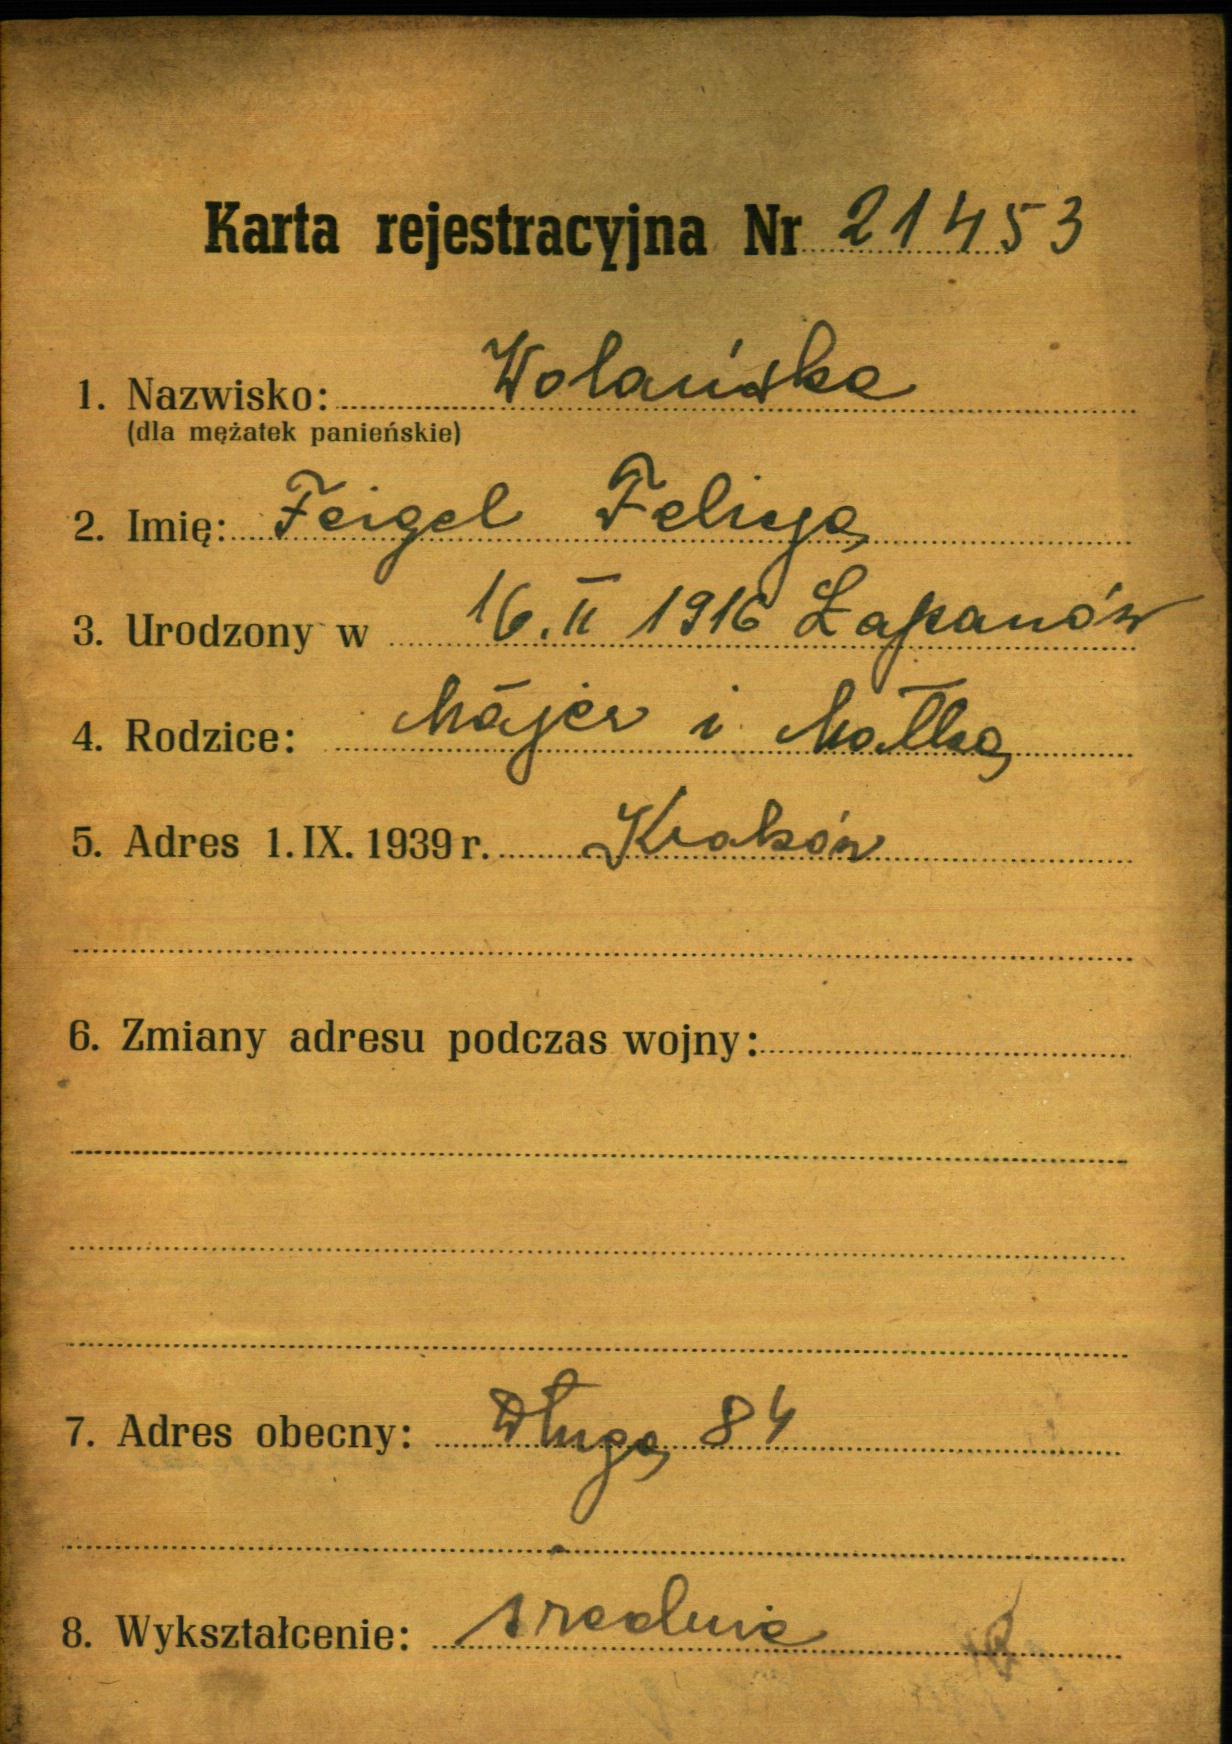 Karta rejestracyjna Nr 21453
1. Nazwisko: Wolańska
(dla mężatek panieńskie)
2. Imię: Feigel Felicja
3. Urodzony w 16.II 1916 Łapanów
4. Rodzice: Majer i Małka
5. Adres 1. IX. 1939 r. Kraków
6. Zmiany adresu podczas wojny:
7. Adres obecny: Długa 84
8. Wykształcenie: srednie